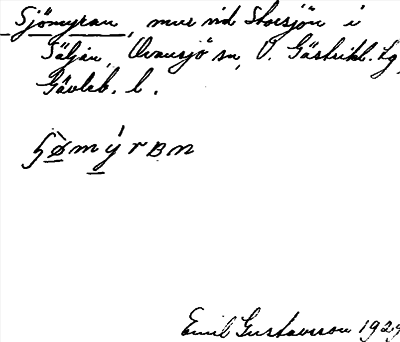 Sjömyran, mur vid Storsjön i
Säljan, Ovansjö sn, V. Gästrikl. tg,
Gävleb. l.
Emil Gustavsson 1929